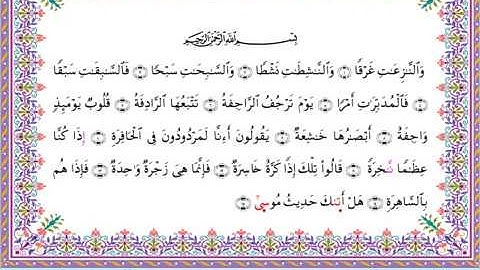 بِسْمِ ٱللَّهِ ٱلرَّحْمَٰنِ ٱلرَّحِيمِ
وَٱلنَّٰزِعَٰتِ غَرْقًا ۝ وَٱلنَّٰشِطَٰتِ نَشْطًا ۝ وَٱلسَّٰبِحَٰتِ سَبْحًا ۝ فَٱلسَّٰبِقَٰتِ سَبْقًا
۝ فَٱلْمُدَبِّرَٰتِ أَمْرًا ۝ يَوْمَ تَرْجُفُ ٱلرَّاجِفَةُ ۝ تَتْبَعُهَا ٱلرَّادِفَةُ ۝ قُلُوبٌ يَوْمَئِذٍ
وَاجِفَةٌ ۝ أَبْصَٰرُهَا خَٰشِعَةٌ ۝ يَقُولُونَ أَءِنَّا لَمَرْدُودُونَ فِى ٱلْحَافِرَةِ ۝ إِذَا كُنَّا
عِظَٰمًا نَّخِرَةً ۝ قَالُوا۟ تِلْكَ إِذًا كَرَّةٌ خَاسِرَةٌ ۝ فَإِنَّمَا هِىَ زَجْرَةٌ وَٰحِدَةٌ ۝ فَإِذَا هُم
بِٱلسَّاهِرَةِ ۝ هَلْ أَتَىٰكَ حَدِيثُ مُوسَىٰٓ ۝